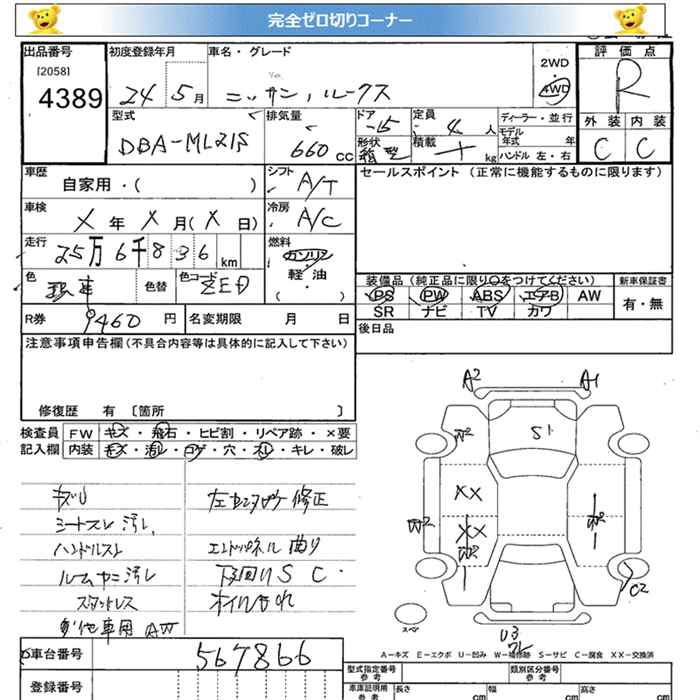 完全ゼロ切りコーナー
出品番号 初度登録年月 車名・グレード 評価点
[2058] 2WD
4389 24 5月 ニッサン, ルークス 4WD R
型式 排気量 ドア 定員 ディーラー・並行 外装 内装
DBA-ML21S 660cc -5 4人 モデル年式 年 C C
形状 箱型 積載 kg ハンドル 左・右
車歴 シフト セールスポイント(正常に機能するものに限ります)
自家用・( ) A/T
車検 X年X月(X日) 冷房 A/C
走行 25万6千836km 燃料 ガソリン
軽・油
( )
色 色替 色コード ZED
装備品(純正品に限り○をつけてください) 新車保証書
PS PW ABS エアB AW 有・無
SR ナビ TV カワ
R券 9460円 名変期限 月 日 後日品
注意事項申告欄(不具合内容等は具体的に記入して下さい)
修復歴 有 [箇所 ]
検査員 FW キズ・飛石・ヒビ割・リペア跡・×要
記入欄 内装 キズ・汚レ・コゲ・穴・スレ・キレ・破レ
修正
シートスレ 汚レ
ハンドルスレ エンドパネル 曲り
ルームヤニ汚レ 下回り S C
スタットレス オイルもれ
他車用 AW
A2 A1
S1
XX
XX
C2
U3
スペア
A-キズ E-エクボ U-凹み W-補修跡 S-サビ C-腐食 XX-交換済
車台番号 567866
型式指定番号 参考 類別区分番号 参考
登録番号 車庫証明用 参考 長さ cm 幅 cm 高さ cm